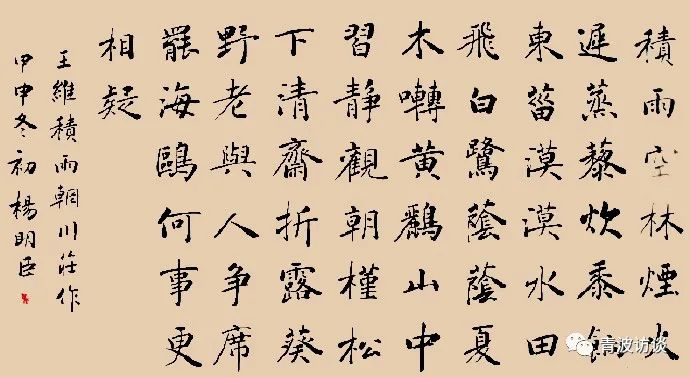 積雨空林煙火
遲蒸藜炊黍餉
東菑漠漠水田
飛白鷺蔭蔭夏
木囀黄鸝山中
習静觀朝槿松
下清齋折露葵
野老與人争席
罷海鷗何事更
相疑
王維積雨輞川莊作
甲申冬初楊明臣
青波访谈